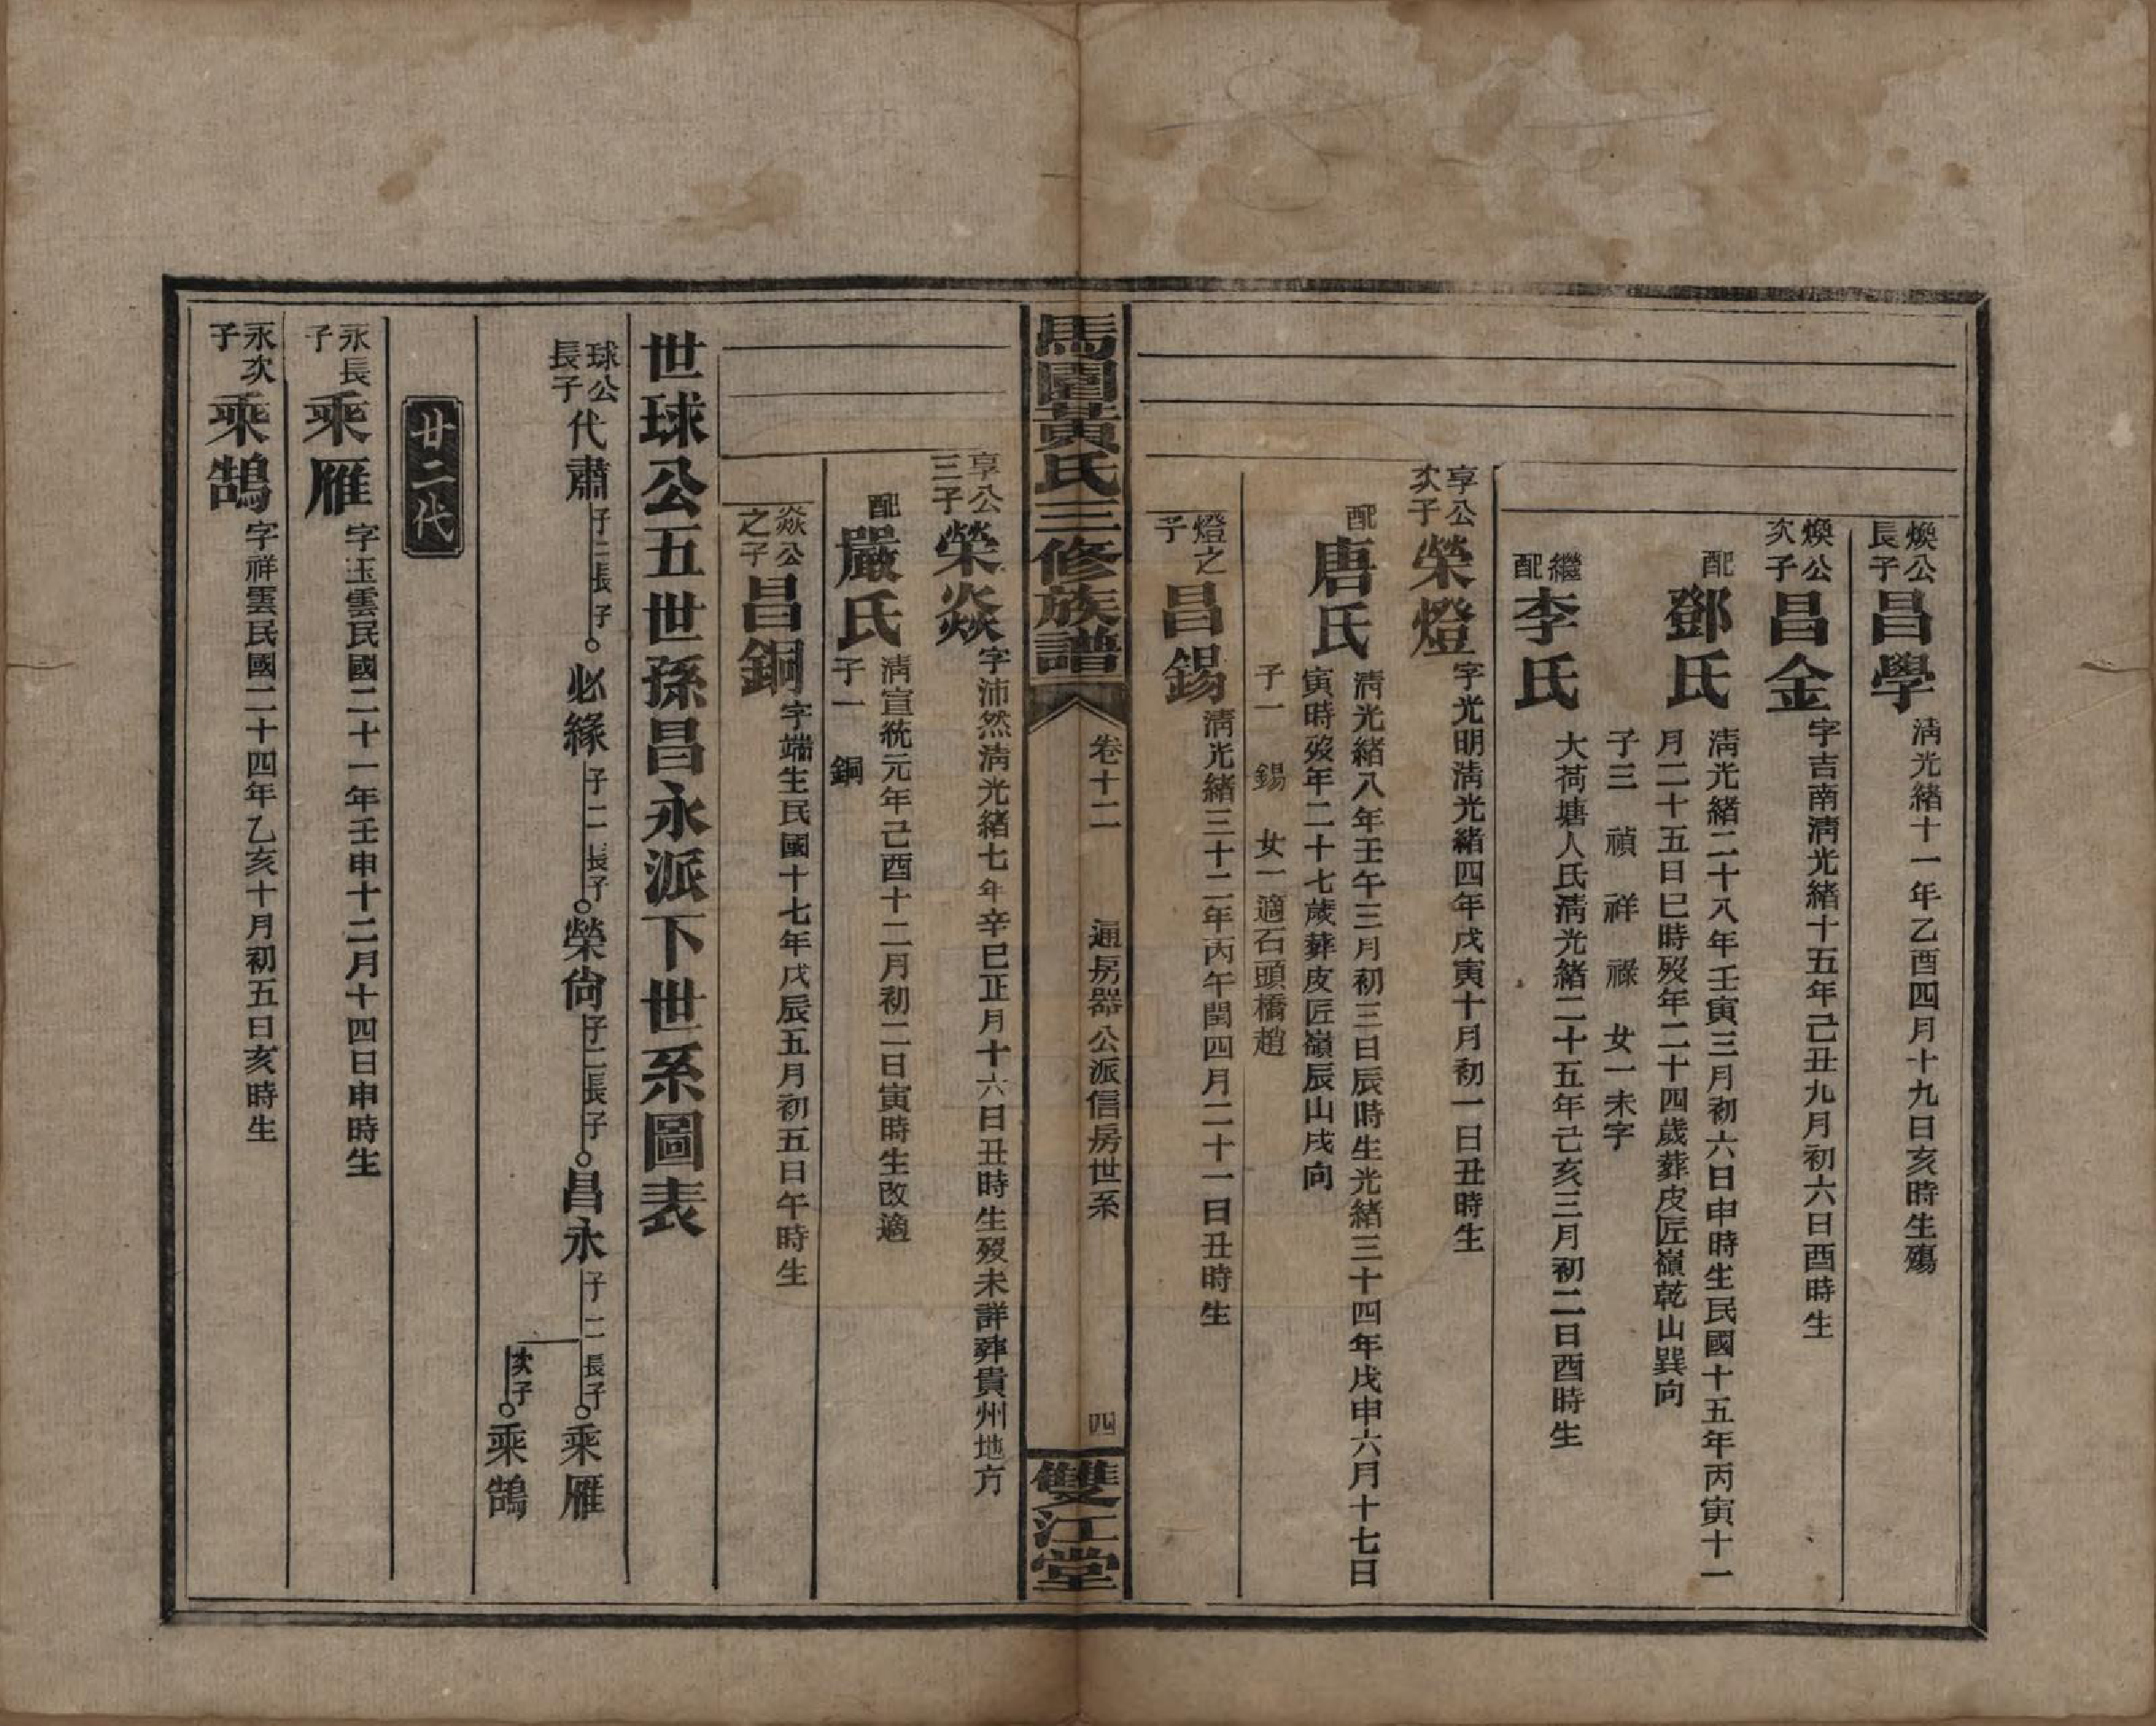 煥公長子昌學 清光緒十一年乙酉四月十九日亥時生殤
煥公次子昌金 字吉南清光緒十五年己丑九月初六日酉時生
配鄧氏 清光緒二十八年壬寅三月初六日申時生民國十五年丙寅十一
月二十五日巳時歿年二十四歲葬皮匠嶺乾山巽向
子三 禎 祥 祿 女一未字
繼配李氏 大荷塘人氏清光緒二十五年己亥三月初二日酉時生
享公次子榮燈 字光明清光緒四年戊寅十月初一日丑時生
配唐氏 清光緒八年壬午三月初三日辰時生光緒三十四年戊申六月十七日
寅時歿年二十七歲葬皮匠嶺辰山戌向
子一 錫 女一適石頭橋趙
燈之子昌錫 清光緒三十二年丙午閏四月二十一日丑時生
馬園黃氏三修族譜 卷十二 通房器公派信房世系 四 雙江堂
享公三子榮焱 字沛然清光緒七年辛巳正月十六日丑時生歿未詳葬貴州地方
配嚴氏 清宣統元年己酉十二月初二日寅時生改適
子一 銅
焱公之子昌銅 字端生民國十七年戊辰五月初五日午時生
世球公五世孫昌永派下世系圖表
球公長子代肅 子二長子 必緣 子二長子 榮尙 子二長子 昌永 子二長子 乘雁
次子 乘鵠
廿二代
永長子乘雁 字玉雲民國二十一年壬申十二月十四日申時生
永次子乘鵠 字祥雲民國二十四年乙亥十月初五日亥時生